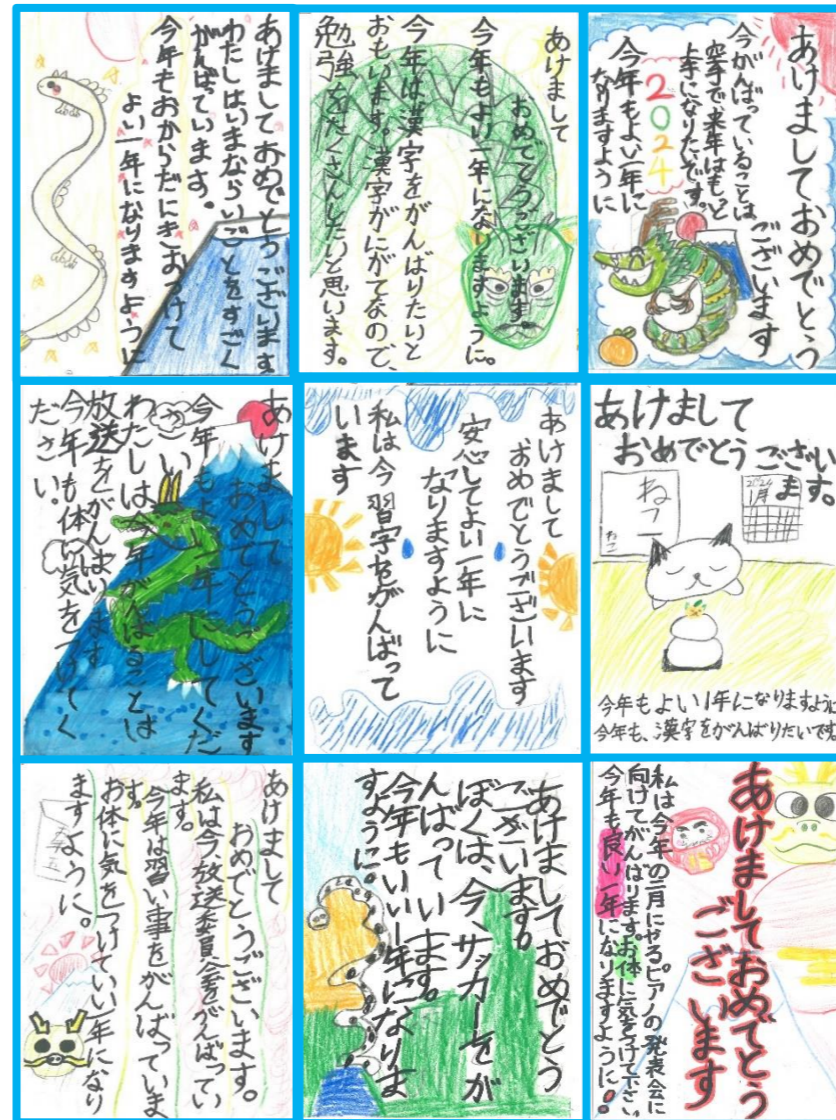 あけましておめでとうございます。
わたしはいまならいごとをすごく
がんばっています。
今年もおからだにきおつけて
よい一年になりますように
あけまして
おめでとうございます。
今年もよい一年になりますように。
今年は漢字をがんばりたいと
おもいます。漢字がにがてなので、
勉強をたくさんしたいと思います。
あけましておめでとう
ございます
今がんばっていることは
空手で、来年はもっと
上手になりたいです。
2024
今年もよい一年に
なりますように
あけまして
おめでとうございます
今年もよい一年にしてくだ
さい
わたしは今年がんばることは
放送をがんばります
今年も体に気をつけてく
ださい。
あけまして
おめでとうございます
安心してよい一年に
なりますように
私は今習字をがんばって
います
あけまして
おめでとうござい
ます。
ねこ
ねこ
2024
1月
今年もよい1年になりますように
今年も、漢字をがんばりたいです。
あけまして
おめでとうございます。
私は今、放送委員会をがんばってい
ます。
今年は習い事をがんばっていま
す。
お体に気をつけていい一年になり
ますように。
あけましておめでとう
ございます。
ぼくは、今、サッカーをが
んばっています。
今年もいい1年になりま
すように。
あけましておめでとう
ございます
私は今年の二月にやる。ピアノの発表会に
向けてがんばります。お体に気をつけて下さい。
今年も良い一年になりますように!